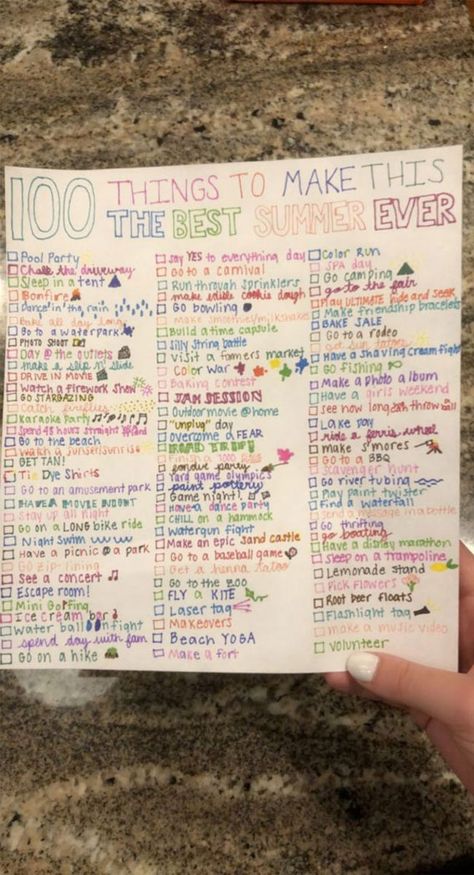 100 THINGS TO MAKE THIS
THE BEST SUMMER EVER
Pool Party
Chalk the driveway
Sleep in a tent
Bonfire
Dance in the rain
Bake all day long
Go to a waterpark
PHOTO SHOOT
Day @ the outlets
make a slip n' slide
DRIVE IN MOVIE
Watch a firework show
GO STARGAZING
Catch fireflies
Karaoke Party
Spend 48 hours straight
Go to the beach
Watch a sunset/sunrise
GET TAN!
Tie Dye Shirts
Go to an amusement park
HAVE A MOVIE NIGHT
Stay up all night
Go on a LONG bike ride
Night Swim
Have a picnic @ a park
Go zip-lining
See a concert
Escape room!
Mini Golfing
Ice cream bar
Water balloon fight
spend day with fam
Go on a hike
say YES to everything day
Go to a carnival
Run through sprinklers
make edible cookie dough
GO bowling
make smoothies/milkshakes
Build a time capsule
Silly string battle
Visit a famers market
Color War
Baking contest
JAM SESSION
Outdoor movie @ home
"unplug" day
overcome a FEAR
ROAD TRIP!
Finish a 1000 piece
fondue party
Yard game olympics
paint pottery
Game night!
Have a dance party
CHILL on a hammock
Watergun fight
Make an epic sand castle
Go to a baseball game
Get a henna tatoo
Go to the zoo
FLY a KITE
Laser tag
Makeovers
Beach YOGA
Make a fort
Color Run
SPA day
Go camping
go to the fair
Play ULTIMATE hide and seek
Make friendship bracelets
BAKE SALE
Go to a rodeo
Get fun tatoos
Have a shaving cream fight
GO fishing
Make a photo album
Have a girls weekend
See how long throw ball
Lake day
ride a ferris wheel
make s'mores
Go to a BBQ
Scavenger hunt
GO river tubing
Play paint twister
Find a waterfall
Send a message in a bottle
Go thrifting
go boating
Have a disney marathon
Sleep on a trampoline
Lemonade stand
Pick flowers
Root beer floats
Flashlight tag
make a music video
volunteer